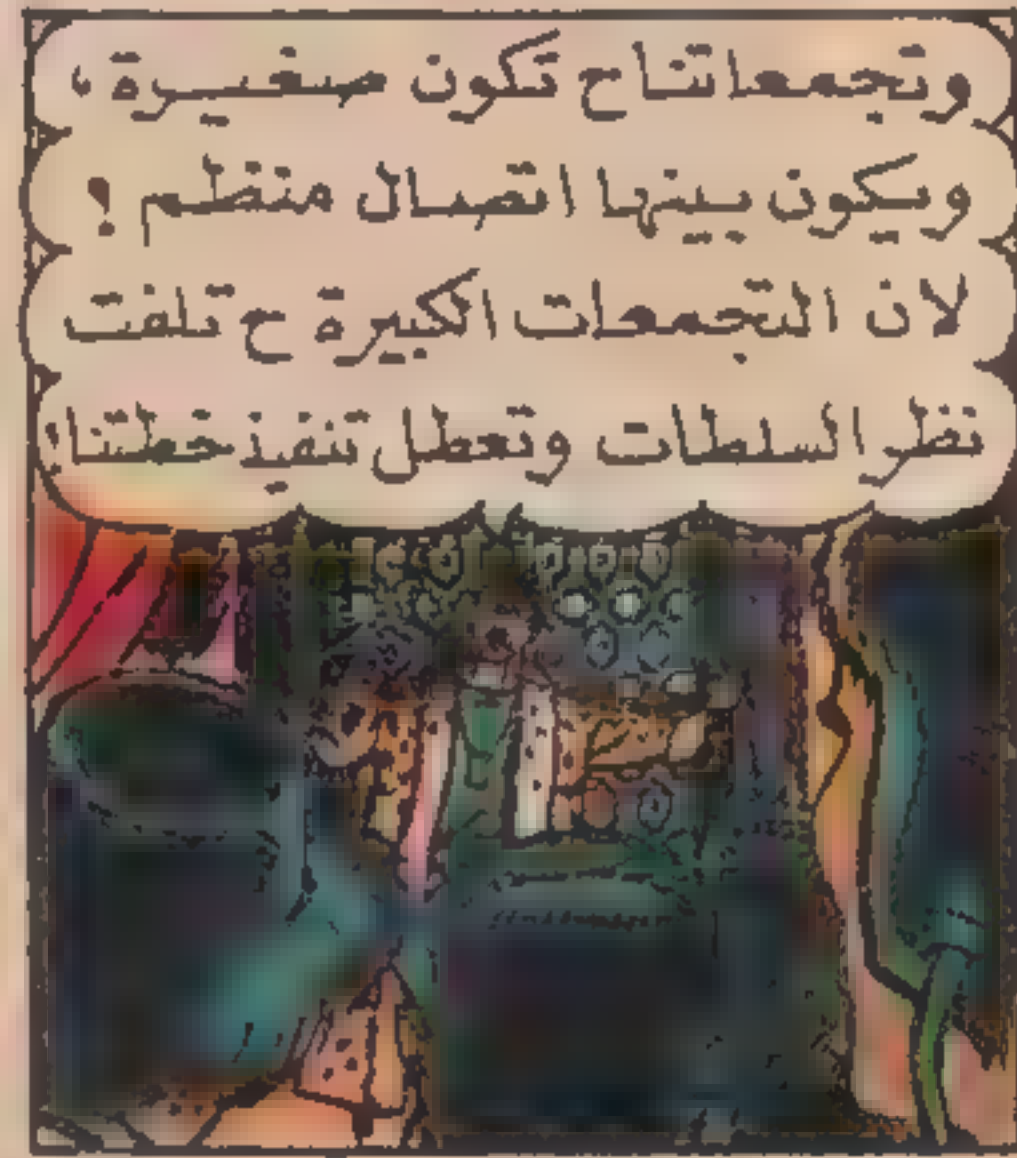 وتجمعاتنا ح تكون صغيرة ،
ويكون بينها اتصال منظم !
لان التجمعات الكبيرة ح تلفت
نظر السلطات وتعطل تنفيذ خطتنا !